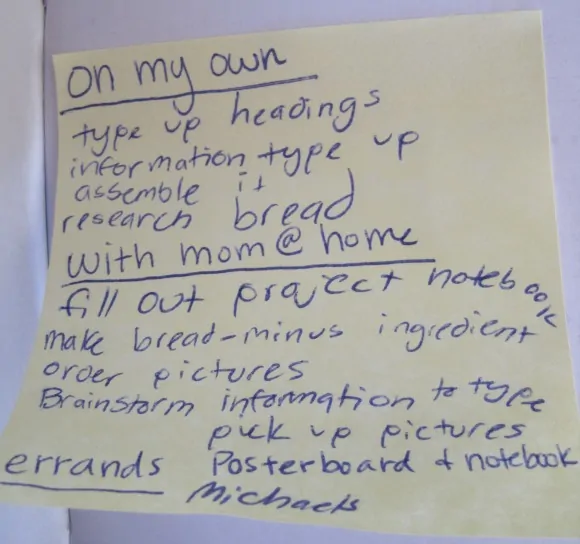 on my own
type up headings
information type up
assemble it
research bread
with mom @ home
fill out project notebook
make bread-minus ingredient
order pictures
Brainstorm information to type
pick up pictures
errands Posterboard & notebook
Michaels